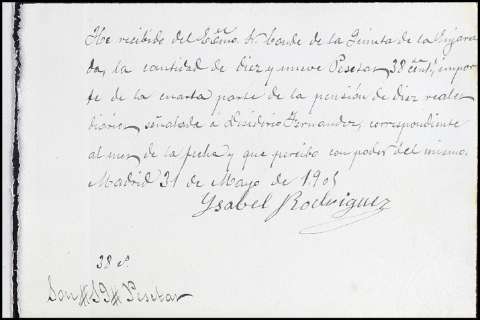 He recibido del Exmo. Sr. Conde de la Quinta de la Enjara
da, la cantidad de diez y nueve Pesetas, 38 cents, impor
te de la cuarta parte de la pensión de diez reales
diarios señalada á Desiderio Fernandez, correspondiente
al mes de la fecha y que percibo con poder del mismo.
Madrid 31 de Mayo de 1905
Ysabel Rodriguez
38 c.
Son #19# Pesetas